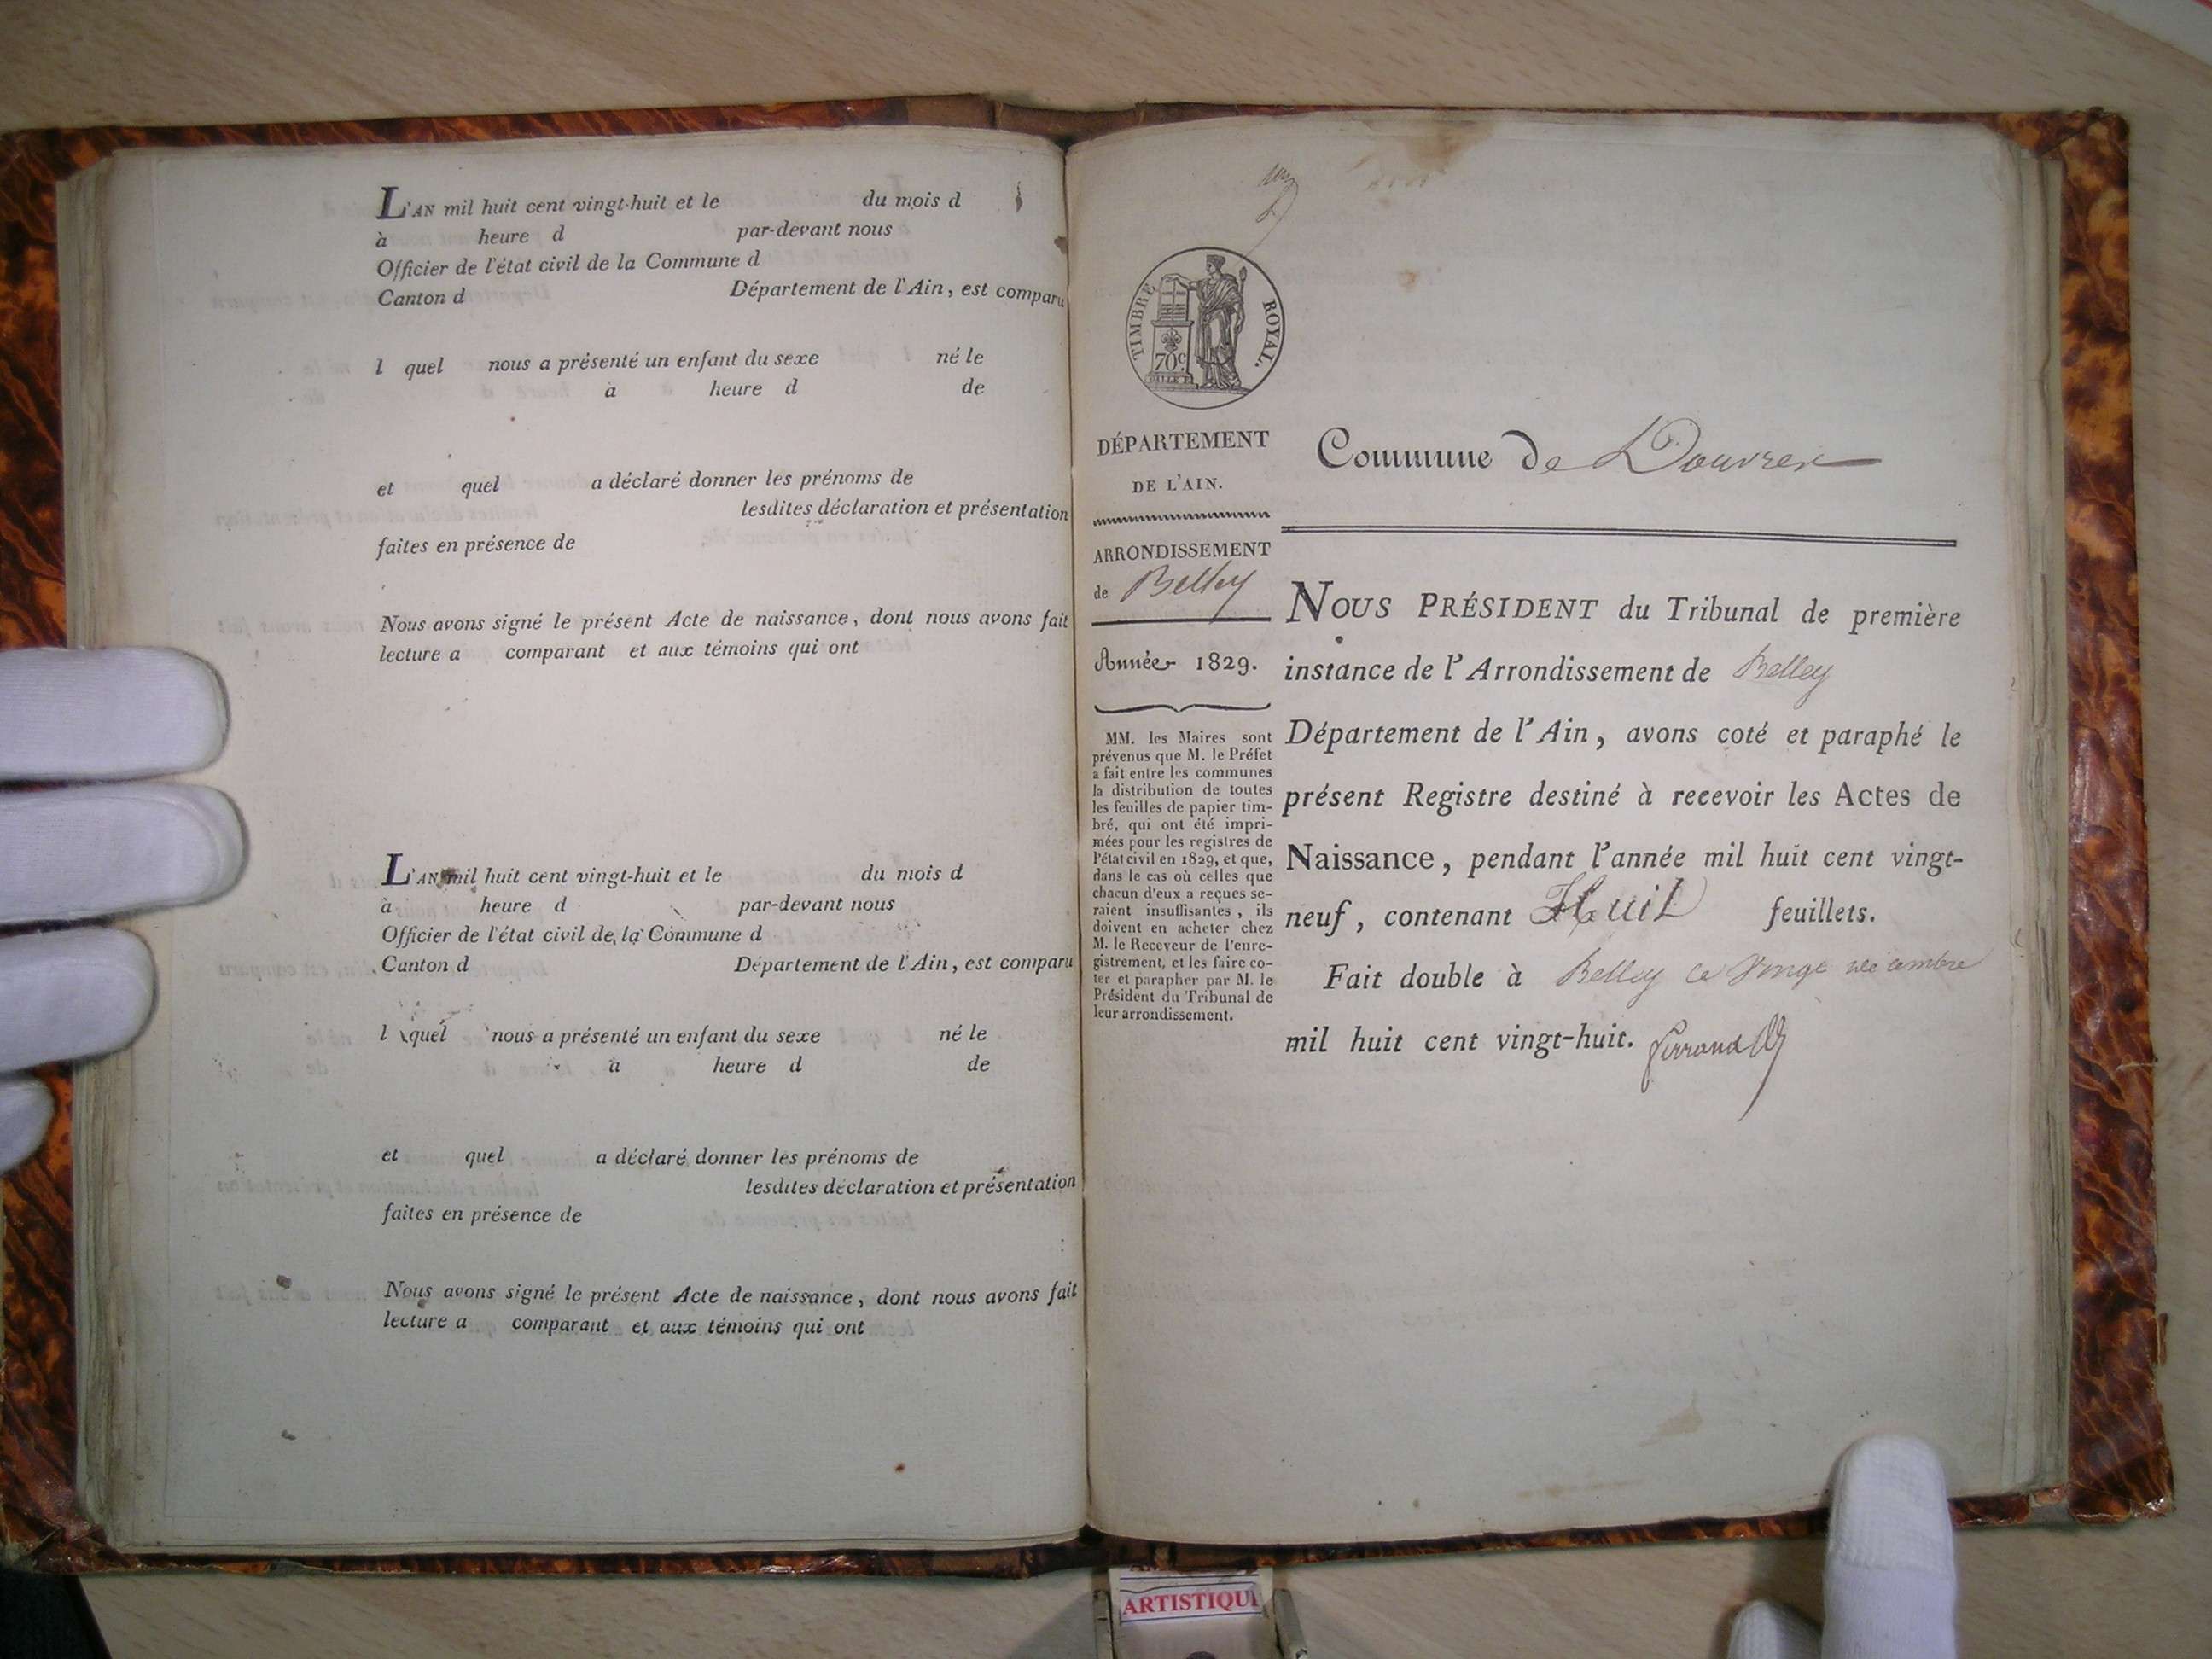 L'AN mil huit cent vingt-huit et le du mois d
à heure d par-devant nous
Officier de l'état civil de la Commune d
Canton d Département de l'Ain, est comparu
l quel nous a présenté un enfant du sexe né le
à heure d de
et quel a déclaré donner les prénoms de
lesdites déclaration et présentation
faites en présence de
Nous avons signé le présent Acte de naissance, dont nous avons fait
lecture a comparant et aux témoins qui ont
L'AN mil huit cent vingt-huit et le du mois d
à heure d par-devant nous
Officier de l'état civil de la Commune d
Canton d Département de l'Ain, est comparu
l quel nous a présenté un enfant du sexe né le
à heure d de
et quel a déclaré donner les prénoms de
lesdites déclaration et présentation
faites en présence de
Nous avons signé le présent Acte de naissance, dont nous avons fait
lecture a comparant et aux témoins qui ont
TIMBRE ROYAL.
70c
DÉPARTEMENT
DE L'AIN.
ARRONDISSEMENT
de Belley
Année 1829.
MM. les Maires sont
prévenus que M. le Préfet
a fait entre les communes
la distribution de toutes
les feuilles de papier tim-
bré, qui ont été impri-
mées pour les registres de
l'état civil en 1829, et que,
dans le cas où celles que
chacun d'eux a reçues se-
raient insuffisantes, ils
doivent en acheter chez
M. le Receveur de l'enre-
gistrement, et les faire co-
ter et parapher par M. le
Président du Tribunal de
leur arrondissement.
Commune de Douvres
NOUS PRÉSIDENT du Tribunal de première
instance de l'Arrondissement de Belley
Département de l'Ain, avons coté et paraphé le
présent Registre destiné à recevoir les Actes de
Naissance, pendant l'année mil huit cent vingt-
neuf, contenant Huit feuillets.
Fait double à Belley ce Vingt décembre
mil huit cent vingt-huit.
ARTISTIQU